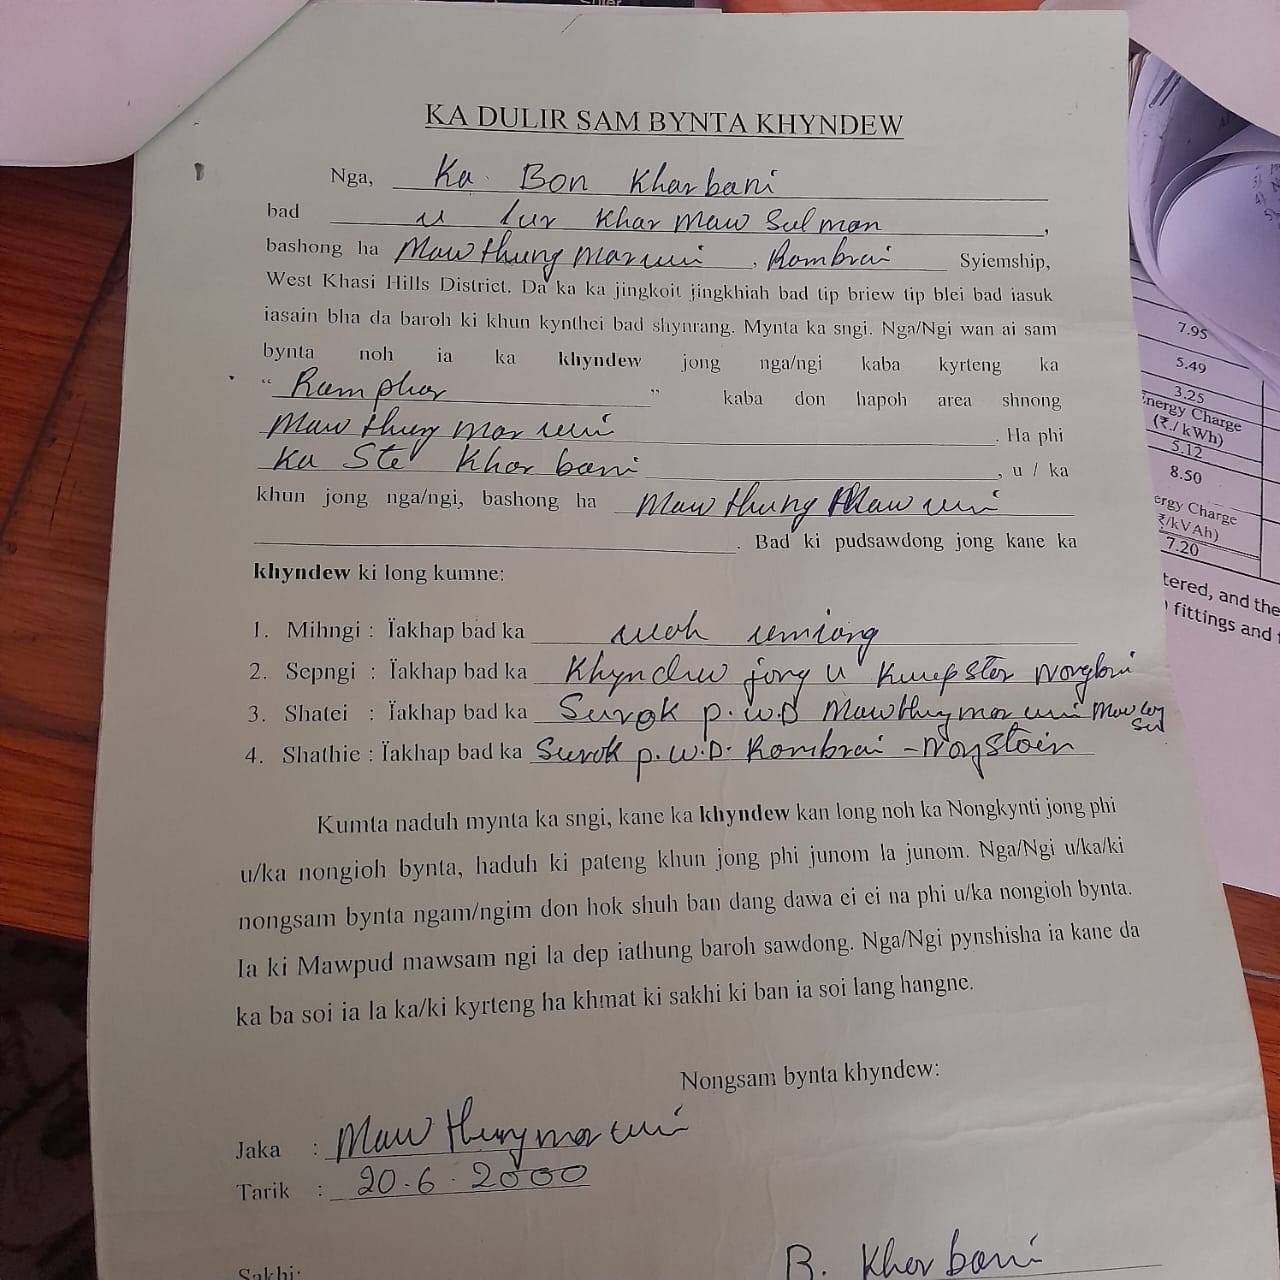 KA DULIR SAM BYNTA KHYNDEW
Nga, Ka Bon Kharbani
bad u Lur Kharmawsulman,
bashong ha Mawthungmarwei, Rambrai Syiemship,
West Khasi Hills District. Da ka ka jingkoit jingkhiah bad tip briew tip blei bad iasuk
iasain bha da baroh ki khun kynthei bad shynrang. Mynta ka sngi. Nga/Ngi wan ai sam
bynta noh ia ka khyndew jong nga/ngi kaba kyrteng ka
“ Ramphor ” kaba don hapoh area shnong
Mawthungmarwei. Ha phi
Ka Ste Kharbani, u / ka
khun jong nga/ngi, bashong ha Mawthung
. Bad ki pudsawdong jong kane ka
khyndew ki long kumne:
1. Mihngi : Ïakhap bad ka wah umiong
2. Sepngi : Ïakhap bad ka Khyndew jong u Nongbri
3. Shatei : Ïakhap bad ka Surok P.W.D Mawthungmarwei
4. Shathie : Ïakhap bad ka Surok P.W.D. Rambrai - Nongstoin
Kumta naduh mynta ka sngi, kane ka khyndew kan long noh ka Nongkynti jong phi
u/ka nongioh bynta, haduh ki pateng khun jong phi junom la junom. Nga/Ngi u/ka/ki
nongsam bynta ngam/ngim don hok shuh ban dang dawa ei ei na phi u/ka nongioh bynta.
Ia ki Mawpud mawsam ngi la dep iathung baroh sawdong. Nga/Ngi pynshisha ia kane da
ka ba soi ia la ka/ki kyrteng ha khmat ki sakhi ki ban ia soi lang hangne.
Nongsam bynta khyndew:
Jaka : Mawthungmarwei
Tarik : 20.6.2000
Sakhi:
B. Kharbani
7.95
5.49
3.25
Energy Charge
(₹./ kWh)
5.12
8.50
ergy Charge
₹/kVAh)
7.20
tered, and the
fittings and